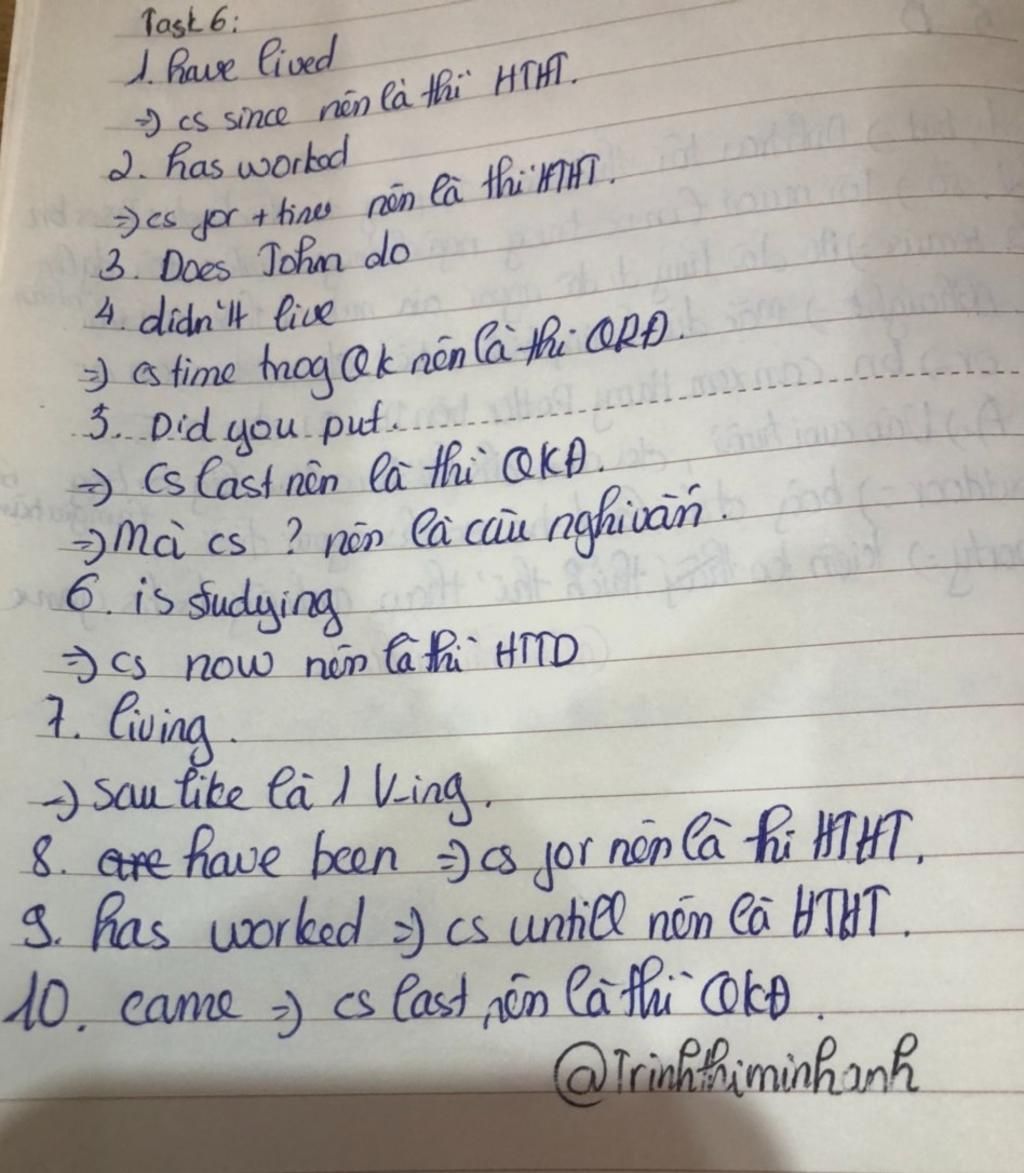 Task 6:
1. have lived
=> cs since nên là thì HTHT.
2. has worked
=> cs for + time nên là thì HTHT.
3. Does John do
4. didn't live
=> cs time trog Qk nên là thì QKĐ.
5. Did you put.
=> Cs last nên là thì QKĐ.
=> Mà cs ? nên là câu nghi vấn.
6. is sudying
=> cs now nên là thì HTTD
7. living.
=> sau like là 1 V-ing.
8. are have been => cs for nên là thì HTHT.
9. has worked => cs untill nên là HTHT.
10. came => cs last nên là thì QKĐ.
@Trinhthiminhanh